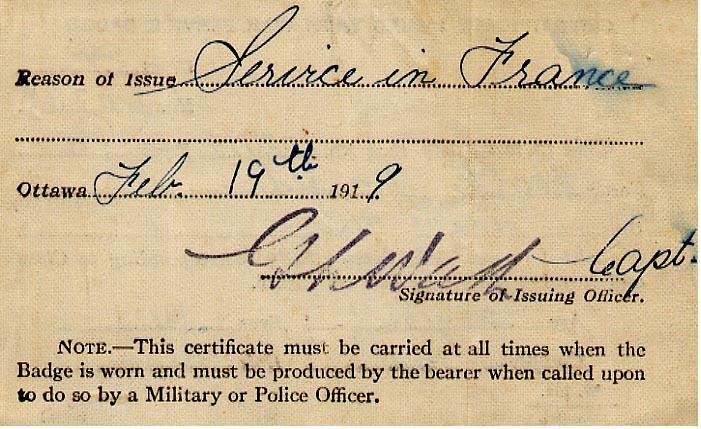 Reason of Issue Service in France
Ottawa Feb. 19th 1919
Capt.
Signature of Issuing Officer.
NOTE.—This certificate must be carried at all times when the
Badge is worn and must be produced by the bearer when called upon
to do so by a Military or Police Officer.